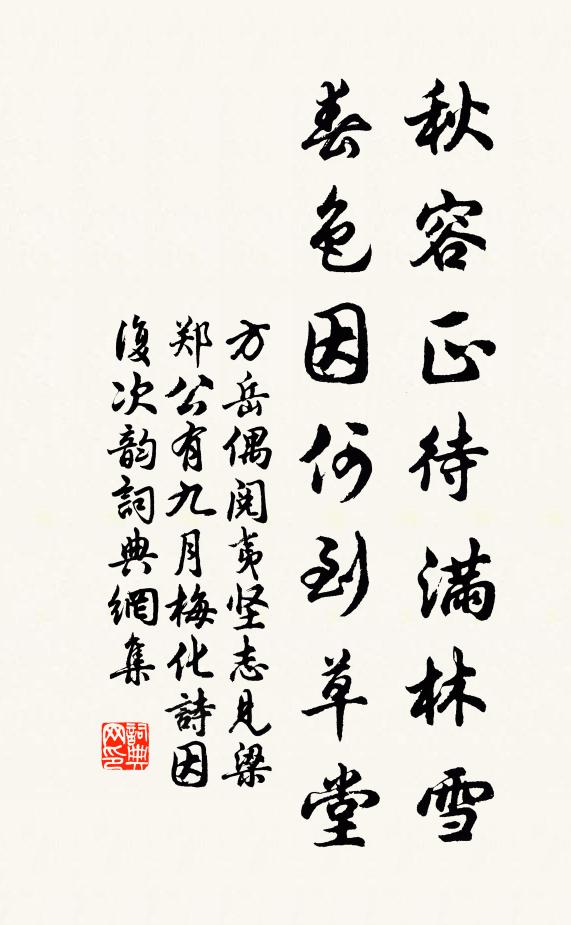 秋容正待滿林雪
春色因何到草堂
方岳偶閱夷坚志見梁
郑公有九月梅化詩因
復次韵詞典網集
詞典网印